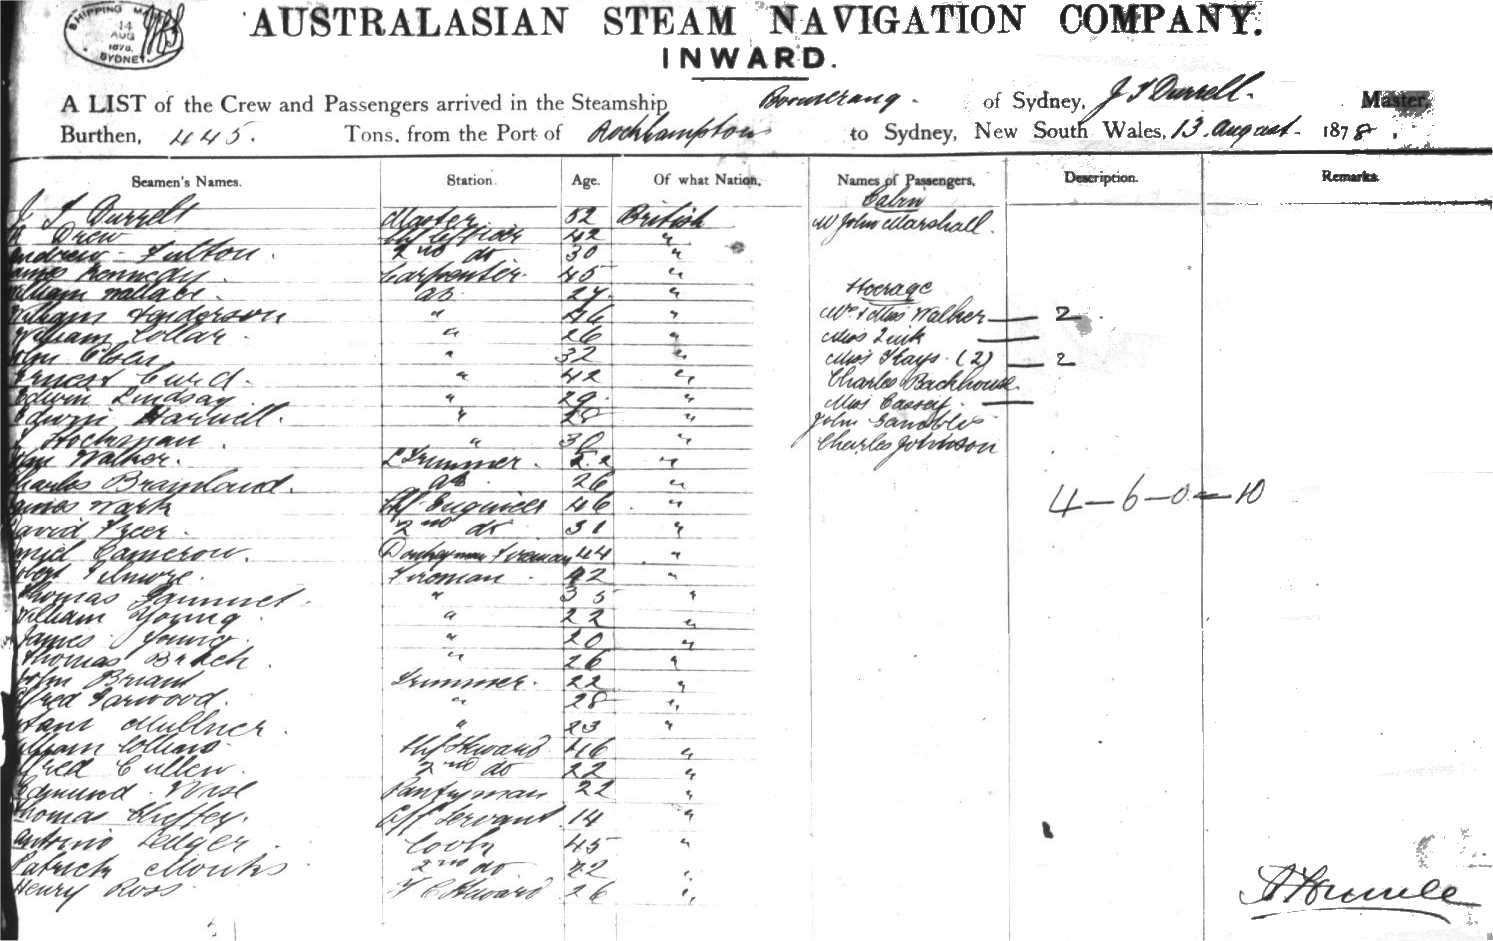 SHIPPING MA
14
AUG
1878.
SYDNEY
AUSTRALASIAN STEAM NAVIGATION COMPANY.
INWARD.
A LIST of the Crew and Passengers arrived in the Steamship Boomerang. of Sydney, J T Durrell. Master,
Burthen, 445. Tons, from the Port of Rockhampton to Sydney, New South Wales, 13. August 1878.
Seamen's Names. Station. Age. Of what Nation, Names of Passengers, Description. Remarks.
Cabin
J T Durrell Master 52 British Mr John Marshall.
Drew Chf Officer 42 "
Andrew Fulton. 2nd do 30 "
James Kennedy Carpenter. 45 "
William Wallace. ab. 27. " Steerage
William Henderson " 46 " Mr & Miss Walker 2
William Collar. " 26 " Miss
" 32 " Miss Hays (2) 2
Ernest Curd. " 42 " Charles Backhouse.
Edwin Lindsay " 29. " Miss
Edwin " 28 " John
" 30 " Charles Johnson
John Walker. Trimmer. 22 "
Charles ab. 26 " 4-6-0-10
James Wark Chf Engineer 46 "
David Freer. 2nd do 31 "
Daniel Cameron. Donkeyman Fireman 44 "
Fireman 42 "
Thomas " 35 "
William Young " 22 "
James Young. " 20 "
Thomas " 26 "
John Briant Trimmer. 22 "
Alfred " 28 "
" 23 "
William Collins Chf Steward 46 "
Alfred Cullen. 2nd do 22 "
Edmund Wise Pantryman 22 "
Thomas Servant. 14 "
Antonio Ledger. Cook 45 "
Patrick Monks 2nd do 22 "
Henry Ross F C Steward 26 "